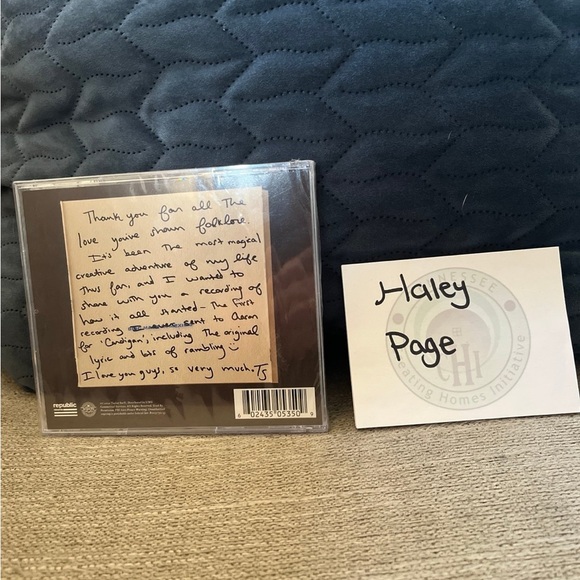 Thank you for all The
love you've shown folklore.
It's been The most magical
creative adventure of my life
Thus far, and I wanted to
share with you a recording of
how it all started. The first
recording sent to Aaron
for 'Cardigan', including The original
lyric and bits of rambling
I love you guys, so very much. TS
republic
8 02435 05350 9
Haley
Page
TENNESSEE
CHI
Creating Homes Initiative